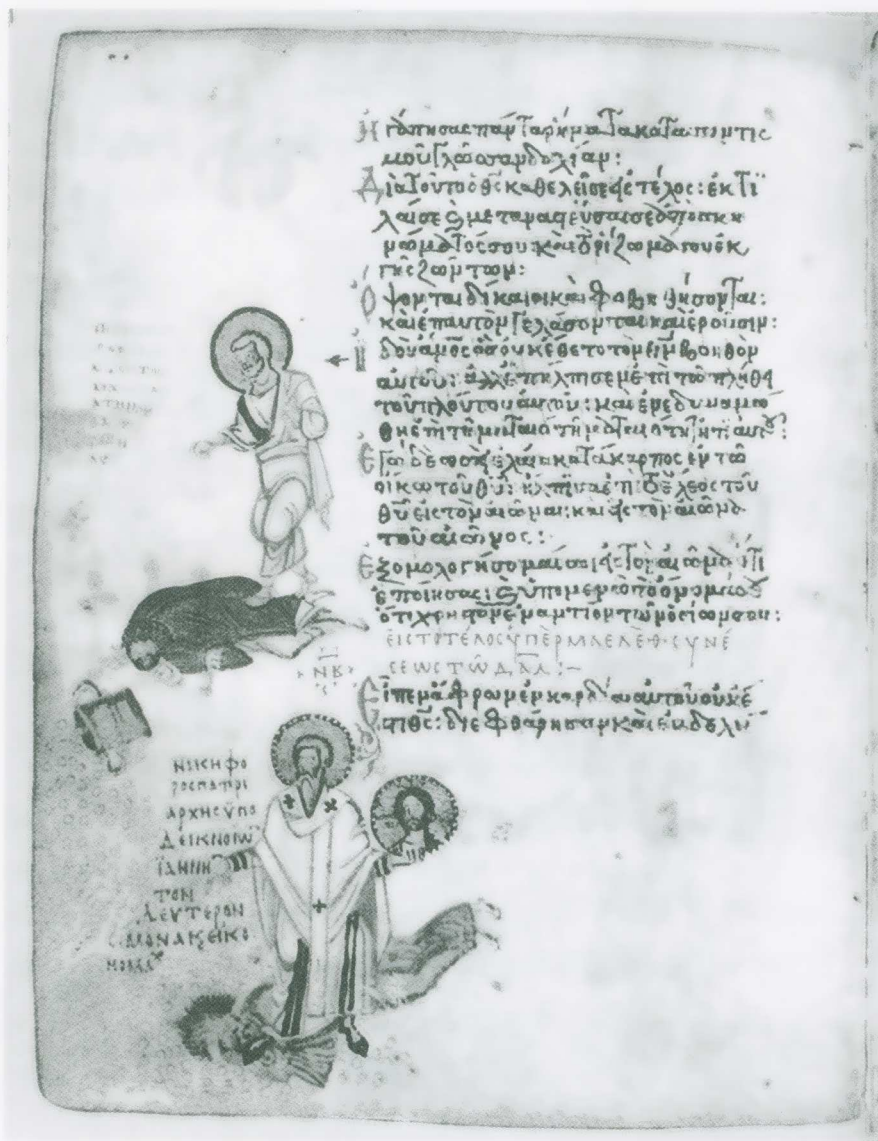 Ἠγάπησας πάντα ρήματα καταποντισ
μοῦ γλῶσσαν δολίαν:
Διὰ τοῦτο ὁ θς καθελεῖ σε εἰς τέλος: ἐκτί
λαι σε ϗ μεταναστεύσαι σε ἀπὸ σκη
νώματός σου: καὶ τὸ ρίζωμά σου ἐκ
γῆς ζώντων:
Ὄψονται δίκαιοι καὶ φοβηθήσονται:
καὶ ἐπ αυτὸν γελάσονται καὶ ἐροῦσιν:
Ἰδοὺ ἄνος ὃς οὐκ ἔθετο τὸν θν βοηθὸν
αὐτοῦ: ἀλλ ἐπήλπισεν ἐπὶ τὸ πλῆθος
τοῦ πλούτου αὐτοῦ: καὶ ἐνεδυναμώ
θη ἐπὶ τῆ ματαιότητι αὐτοῦ:
Ἐγὼ δὲ ὡσεὶ ἐλαία κατάκαρπος ἐν τῶ
οἴκω τοῦ θυ: ἤλπισα ἐπὶ τὸ ἔλεος τοῦ
θυ εἰς τὸν αἰῶνα: καὶ εἰς τὸν αἰῶνα
τοῦ αἰῶνος:
Ἐξομολογήσομαί σοι εἰς τὸν αἰῶνα ὅτι
ἐποίησας: ϗ ὑπομενῶ τὸ ὄνομά σου
ὅτι χρηστὸν ἐναντίον τῶν ὁσίων σου:
ΕΙΣ ΤΟ ΤΕΛΟΣ ΥΠΕΡ ΜΑΕΛΕΘ· ΣΥΝΕ
ΣΕΩΣ ΤΩ ΔΑΔ:–
ΝΒ
Εἶπεν ἄφρων ἐν καρδία αυτοῦ οὐκ ἔ
στι θς: διεφθάρησαν καὶ ἐβδελύ
ΝΙΚΗΦΟ
ΡΟΣ ΠΑΤΡΙ
ΑΡΧΗΣ ΥΠΟ
ΔΕΙΚΝΟΙΩ
ΙΑΝΝΗ
ΤΟΝ
ΔΕΥΤΕΡΟΝ
ΣΙΜΟΝΑ Κ ΕΙΚΟ
ΝΟΜΑΧ